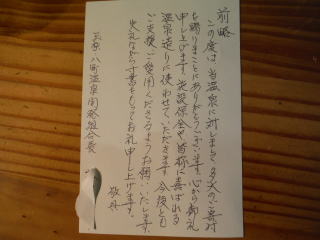 前略
この度は、当温泉に対しまして多大のご寄付
を賜りまことにありがとうございます。心から御礼
申し上げます。施設保全や皆様に喜ばれる
温泉造りに使わせていただきます。今後とも
ご支援ご愛用くださるようお願いいたします。
失礼ながら寸書をもってお礼申し上げます。
敬具
八町温泉開発組合長